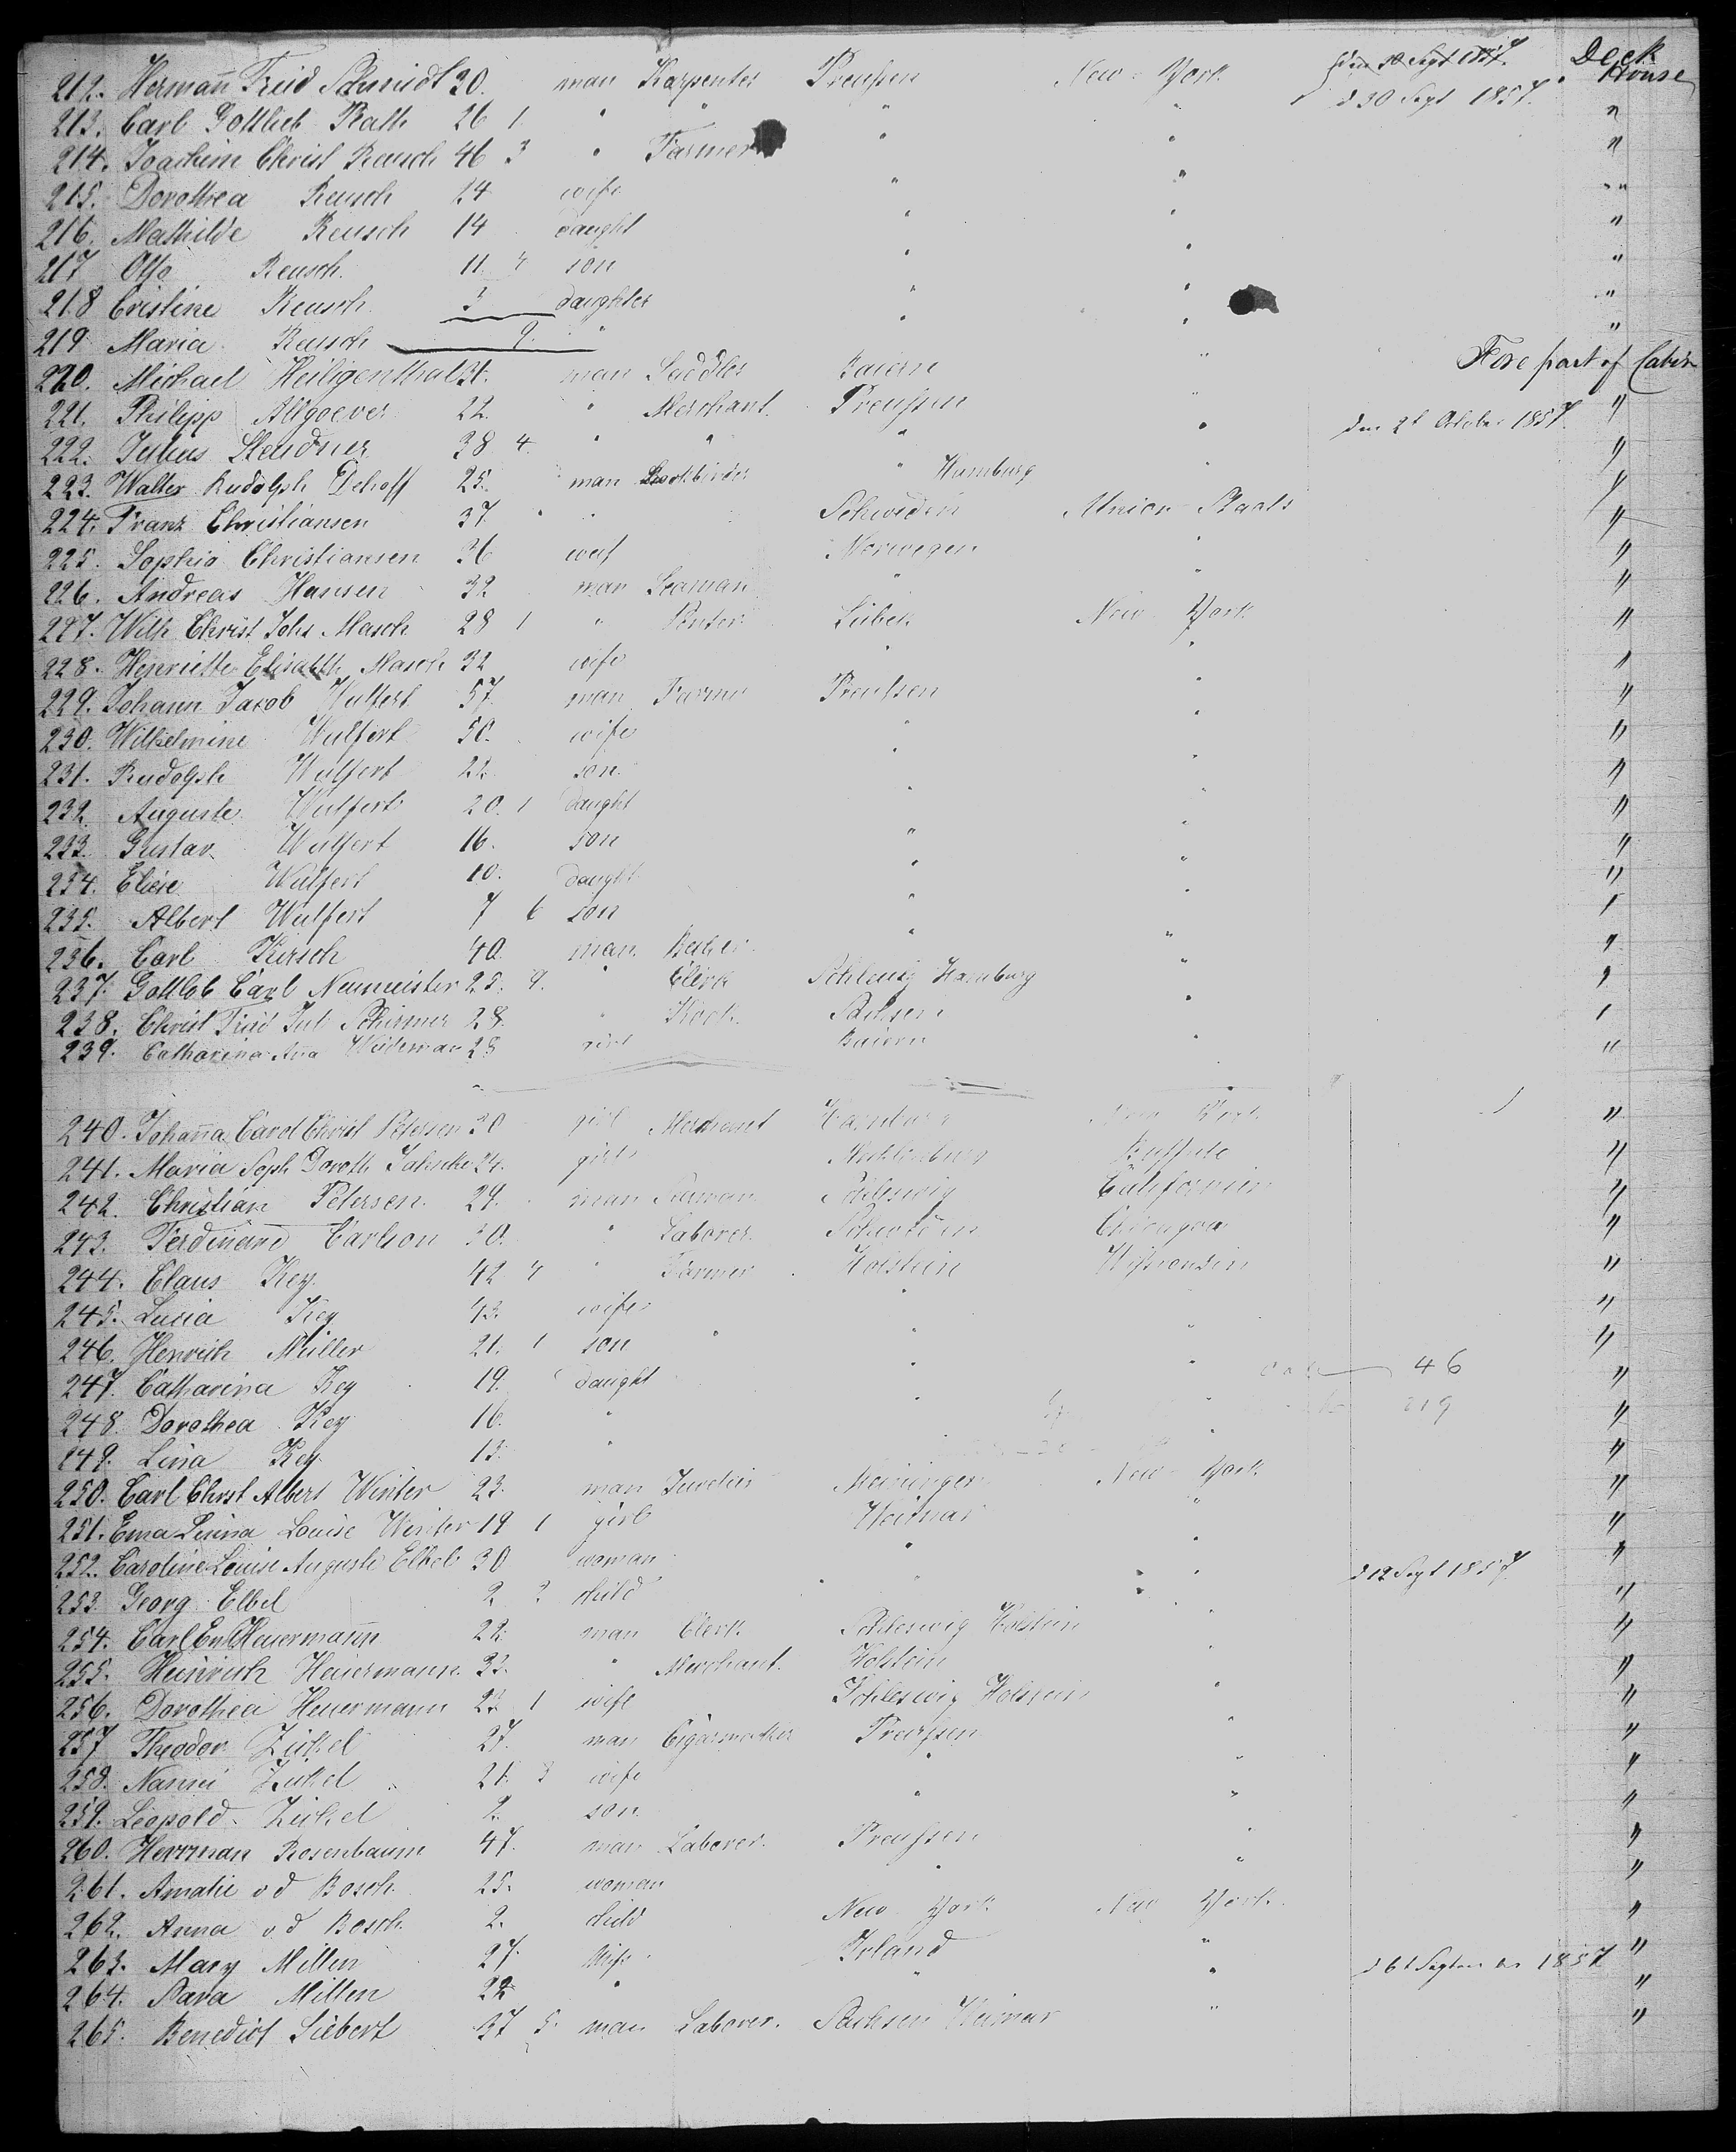 den 30 Sept 1857. Deck House
212. Hermañ Fried Schmidt 30. man Karpenter Preussen New York
213. Carl Gottlieb Rath 26 1 " " " " d 30 Sept 1857. "
214. Joachim Christ Reusch 46 3 " Farmer " " "
215. Dorothea Reusch 24 wife " " "
216. Mathilde Reusch 14 daught " " "
217 Otto Reusch. 11. 4 son " " "
218 Cristine Reusch. 3 daughter " " "
219 Maria Reusch 9. " " " "
220. Michael Heiligenthal 31. man Saddler Baiern " Fore part of Cabin
221. Philipp Allgoever 22. " Merchant. Preussen " "
222. Julius 38 4. " " " " den 2t October 1857. "
223. Walter Rudolph Dehoff 25. man " Hamburg " "
224. Franz Christiansen 37. " " Schweden Union Staats "
225. Sophia Christiansen 36 weif Norwegen " "
226. Andreas Hansen 32 man Seaman " " "
227. Wilh Christ Johs Masch 28 1 " Penter Lübek New York "
228. Henriette Elisabth Masch 32 wife " " "
229. Johann Jacob Wulfert 57. man Farmer Preussen " "
230. Wilhelmine Wulfert 50. wife " " "
231. Rudolph Wulfert 22. son. " " "
232. Auguste Wulfert 20. 1 daught " " "
233. Gustav Wulfert 16. son " " "
234. Eliese Wulfert 10. daught " " "
235. Albert Wulfert 7 6 son " " "
236. Carl Kirsch 40. man Baker " " "
237. Gottlob Carl Neumeister 25. 9. " Clerk Hamburg " "
238. Christ Fried Jul Schirmer 28. " Kock. Sachsen " "
239. Catharina Aña Weideman 28 girl Baiern " "
240. Johaña Carol Christ Petersen 30 girl Merchant Hamburg New York "
241. Maria Soph Doroth 24. girl Mecklenburg "
242. Christian Petersen. 24. man Seaman Schleswig Californien "
243. Ferdinand Carlson 30. " Laborer. Schweden "
244. Claus Key. 42 4 " Farmer Holstein Wisconsin "
245. Lucia Key 43. wife " " "
246. Henrich Müller 21. 1 son " " "
247. Catharina Key 19. daught " " 46 "
248. Dorothea Key 16. " " " 219 "
249. Lina Key 13. " "
250. Carl Christ Albert Winter 23. man Juvelier Meininger New York "
251. Ema Linna Louise Winter 19 1 girl Weimar " "
252. Caroline Louise Auguste Elbel 30 woman " " "
253. Georg Elbel 2 2 child " " d 12 Sept 1857. "
254. Carl Heuermañn 22. man Clerk Schleswig Holstein " "
255. Heinrich Heuermann. 33. " Merchant. Holstein " "
256. Dorothea Heuermann 23 1 wife Schleswig Holstein " "
257 Theodor Zickel 27. man Cigarmacker Preussen " "
258. Nanni Zickel 21. 3 wife " " "
259. Leopold. Zickel 2. son. " " "
260. Herrman Rosenbaum 47. man Laborer. Preussen " "
261. Amalie v d Bosch. 25. woman " " "
262. Anna v. d Bosch. 2. child New York New York. "
263. Mary Millen 27. Wife. Irland " "
264. Sara Millen 22 " " " d 6t September 1857 "
265. Benedict Siebert 37 5. man Laborer. Sachsen Weimar " "